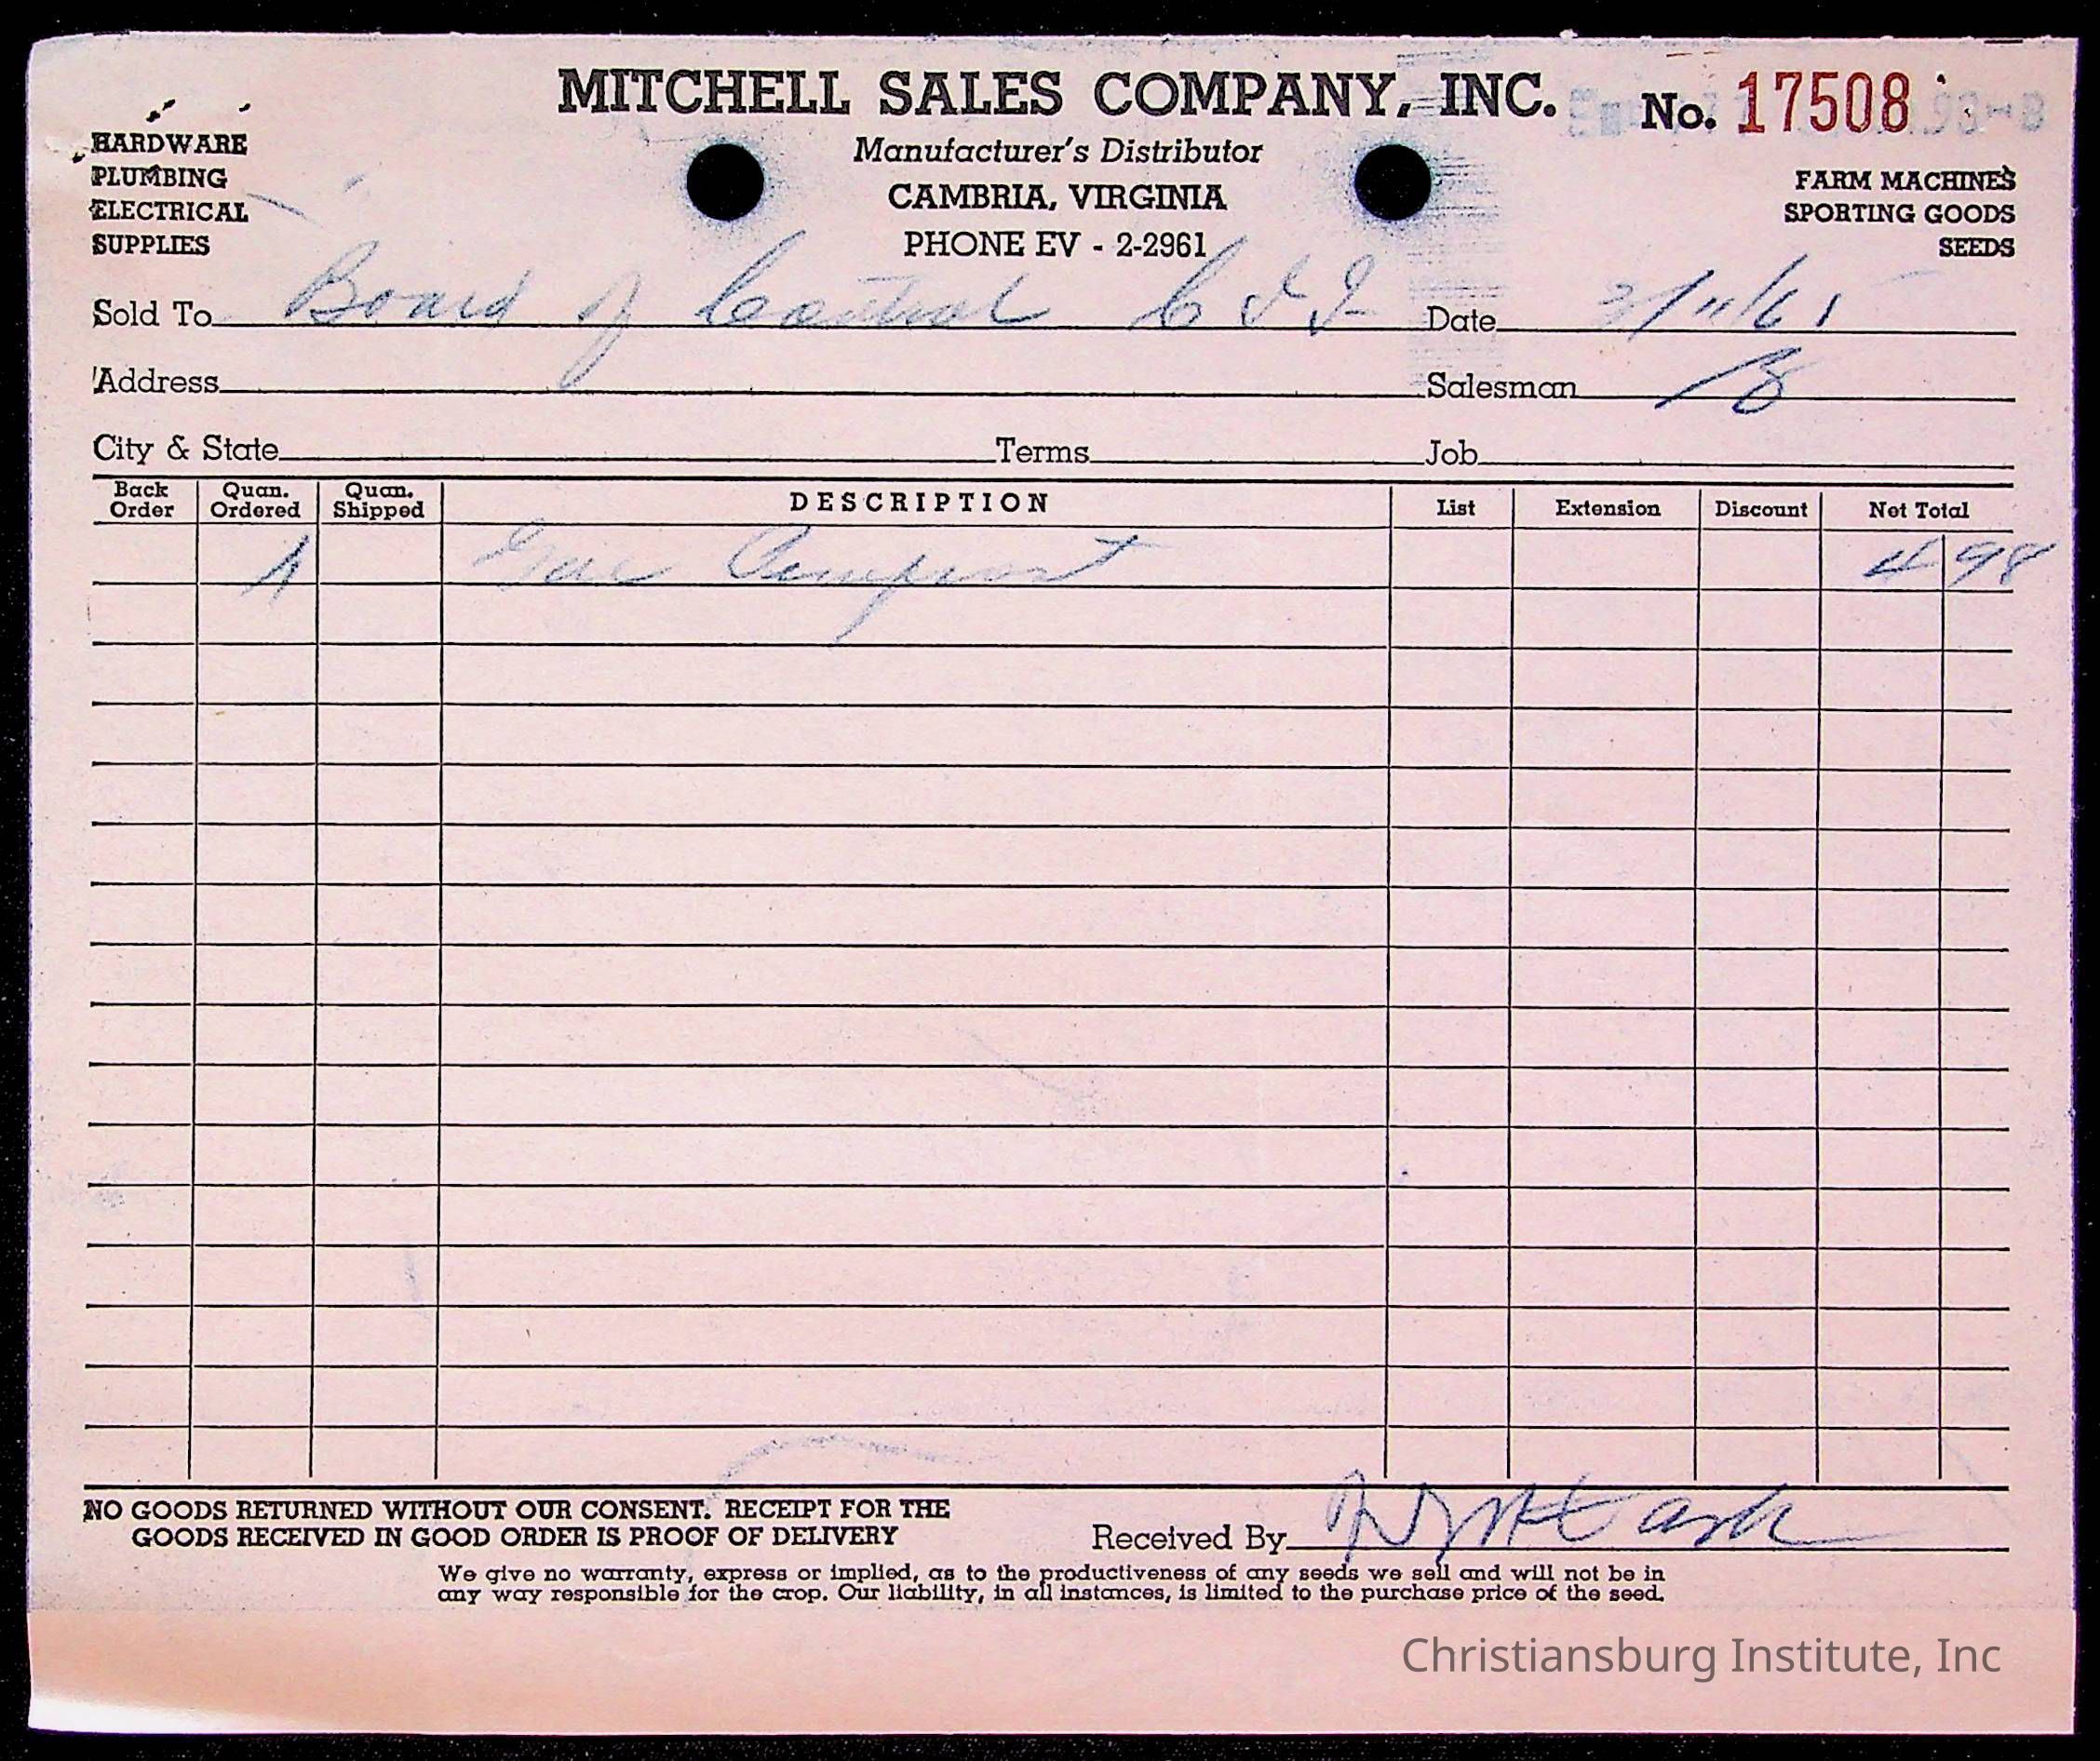 MITCHELL SALES COMPANY, INC.
No. 17508
HARDWARE
PLUMBING
ELECTRICAL
SUPPLIES
Manufacturer's Distributor
CAMBRIA, VIRGINIA
PHONE EV - 2-2961
FARM MACHINES
SPORTING GOODS
SEEDS
Sold To Board of Control C I I Date 3/11/61
Address Salesman B
City & State Terms Job
Back Order Quan. Ordered Quan. Shipped DESCRIPTION List Extension Discount Net Total
4 98
NO GOODS RETURNED WITHOUT OUR CONSENT. RECEIPT FOR THE
GOODS RECEIVED IN GOOD ORDER IS PROOF OF DELIVERY
Received By
We give no warranty, express or implied, as to the productiveness of any seeds we sell and will not be in
any way responsible for the crop. Our liability, in all instances, is limited to the purchase price of the seed.
Christiansburg Institute, Inc